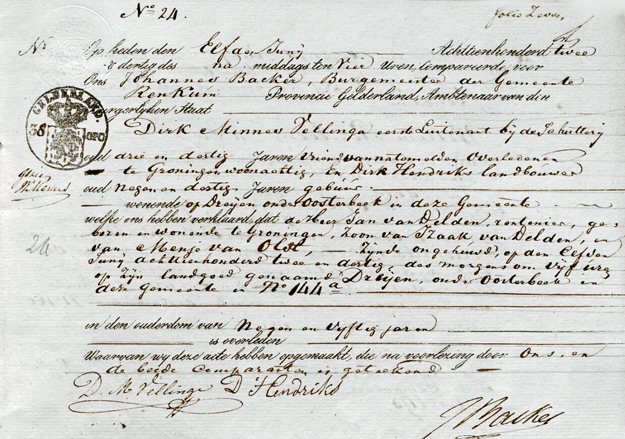 No 24.
folio Zeven
No
Op heden den Elfden Junij Achttienhonderd twee
& dertig des na middags ten vier uren, compareerde voor
Ons Johannes Backer, Burgemeester der Gemeente
Renkum Provincie Gelderland, Ambtenaar van den
Burgerlyken Staat
GELDERLAND
38
Dirk Minnes Vellinga eerste Luitenant bij de Schutterij
oud drie en dertig Jaren Vriend van na te melden Overledenen
te Groningen woonachtig, en Dirk Hendriks landbouwer
oud Negen en dertig Jaren gebuur
wonende op Dreijen onder Oosterbeek in deze Gemeente
welke ons hebben verklaard, dat de Heer Jan van Delden, rentenier, ge-
24
boren en wonende te Groningen, Zoon van Izaak van Delden, en
van Mensje van Olst, Zijnde ongehuwd, op den Elfden
Junij achttienhonderd twee en dertig des morgens om vijf ure
op zijn landgoed genaamd Dreijen, onder Oosterbeek in
deze Gemeente in No 144a
in den ouderdom van Negen en vijftig jaren
is overleden
Waarvan wy deze acte hebben opgemaakt, die na voorlezing door Ons, en
de beide Comparanten is geteekend
D. M. Vellinga D Hendriks
JBacker